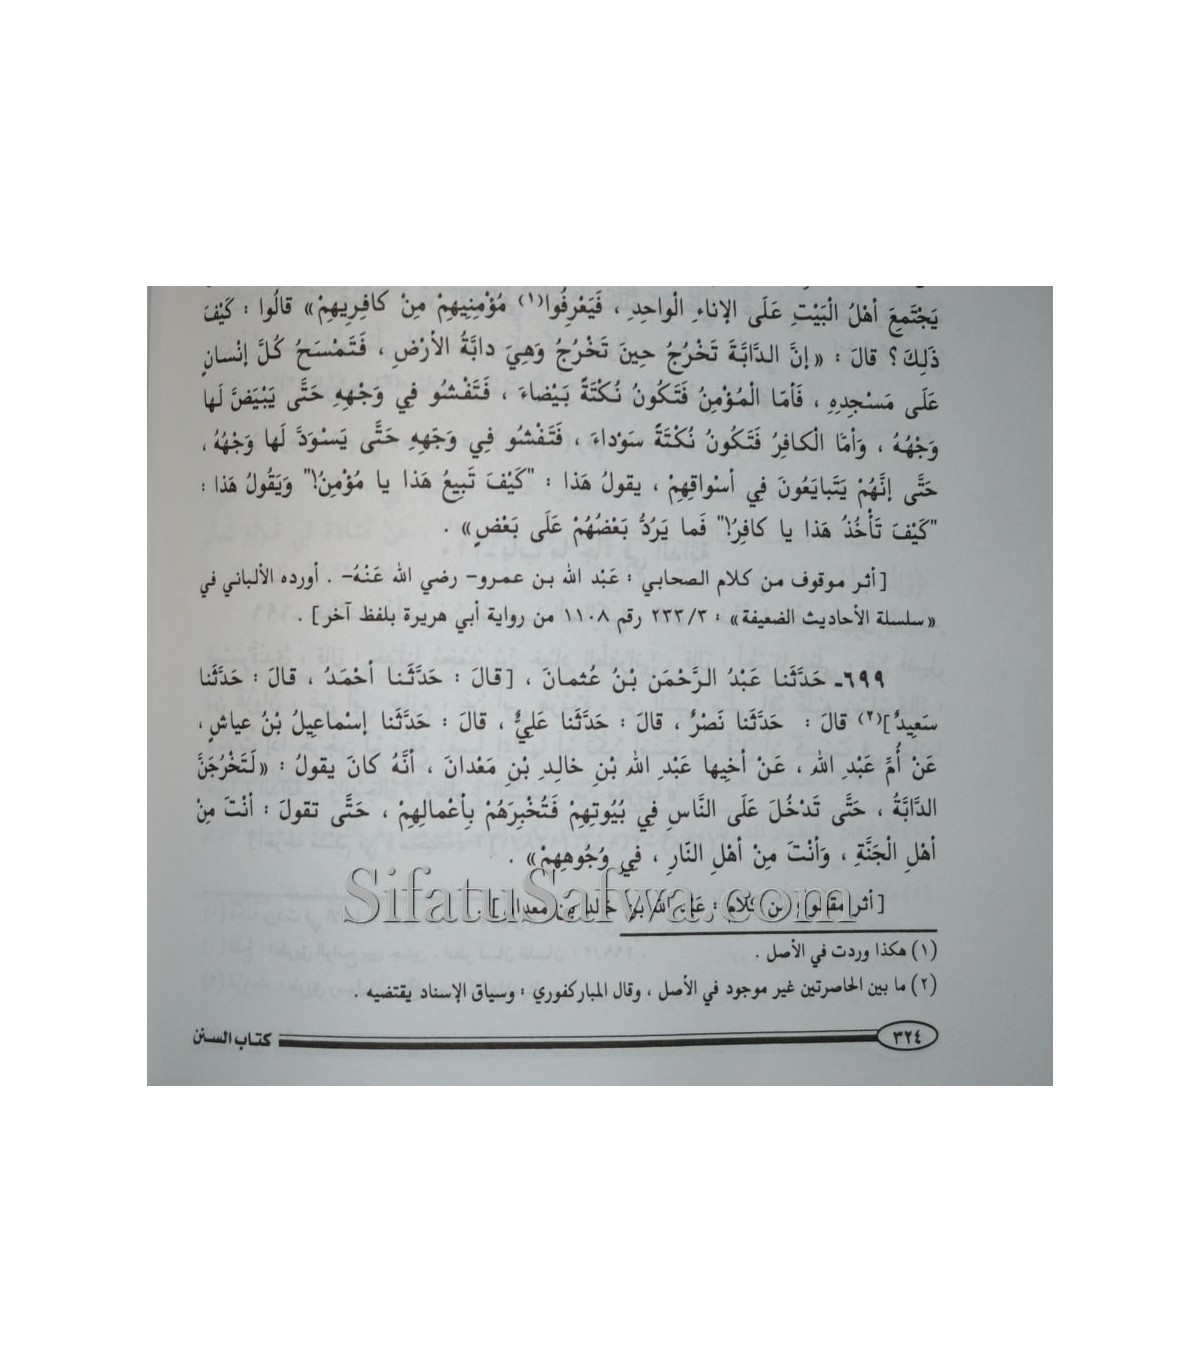 يَجْتَمِعَ أهْلُ الْبَيْتِ عَلَى الإناءِ الْواحِدِ ، فَيَعْرِفُوا(١) مُؤْمِنِيهِمْ مِنْ كافِرِيهِمْ» قالُوا : كَيْفَ
ذَلِكَ ؟ قالَ : «إنَّ الدَّابَّةَ تَخْرُجُ حِينَ تَخْرُجُ وَهِيَ دابَّةُ الأرْضِ ، فَتَمْسَحُ كُلَّ إنْسانٍ
عَلَى مَسْجِدِهِ ، فَأمّا الْمُؤْمِنُ فَتَكُونُ نُكْتَةً بَيْضاءَ ، فَتَفْشُو فِي وَجْهِهِ حَتَّى يَبْيَضَّ لَها
وَجْهُهُ ، وَأمّا الْكافِرُ فَتَكُونُ نُكْتَةً سَوْداءَ ، فَتَفْشُو فِي وَجَهِهِ حَتَّى يَسْوَدَّ لَها وَجْهُهُ ،
حَتَّى إنَّهُمْ يَتَبايَعُونَ فِي أسْواقِهِمْ ، يقولُ هَذا : "كَيْفَ تَبِيعُ هَذا يا مُؤْمِنُ!" وَيَقُولُ هَذا :
"كَيْفَ تَأْخُذُ هَذا يا كافِرُ!" فَما يَرُدُّ بَعْضُهُمْ عَلَى بَعْضٍ» .
[أثر موقوف من كلام الصحابي : عَبْد الله بن عمرو- رضي الله عَنْهُ- . أورده الألباني في
«سلسلة الأحاديث الضعيفة» : ٢٣٣/٣ رقم ١١٠٨ من رواية أبي هريرة بلفظ آخر] .
٦٩٩ـ حَدَّثَنا عَبْدُ الرَّحْمَن بْنُ عُثمانَ ، [قالَ : حَدَّثَنا أحْمَدُ ، قالَ : حَدَّثَنا
سَعِيدٌ](٢) قالَ : حَدَّثَنا نَصْرٌ ، قالَ : حَدَّثَنا عَلِيٌّ ، قالَ : حَدَّثَنا إسْماعِيلُ بْنُ عياشٍ ،
عَنْ أُمِّ عَبْدِ اللهِ ، عَنْ أخِيها عَبْدِ اللهِ بْنِ خالِدِ بْنِ مَعْدانَ ، أنَّهُ كانَ يقولُ : «لَتَخْرُجَنَّ
الدَّابَّةُ ، حَتَّى تَدْخُلَ عَلَى النَّاسِ فِي بُيُوتِهِمْ فَتُخْبِرَهُمْ بِأعْمالِهِمْ ، حَتَّى تقولَ : أنْتَ مِنْ
أهْلِ الْجَنَّةِ ، وَأنْتَ مِنْ أهْلِ النّارِ ، فِي وُجُوهِهِمْ» .
SifatuSafwa.com
[أثر مقطوع من كلام : عَبْد الله بن خالد بن معدان] .
(١) هكذا وردت في الأصل .
(٢) ما بين الحاصرتين غير موجود في الأصل ، وقال المباركفوري : وسياق الإسناد يقتضيه .
٣٢٤ كتاب السنن